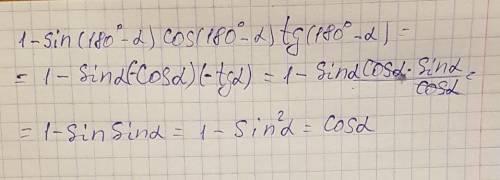 1-sin(180°-α) cos(180°-α) tg(180°-α) =
= 1 - sinα(-cosα)(-tgα) = 1 - sinα cosα · sinα/cosα =
= 1-sin sinα = 1 - sin²α = cosα